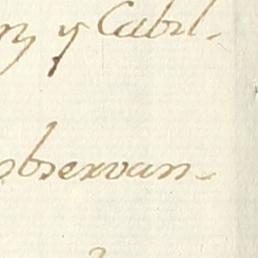 y Cabil-
observan-